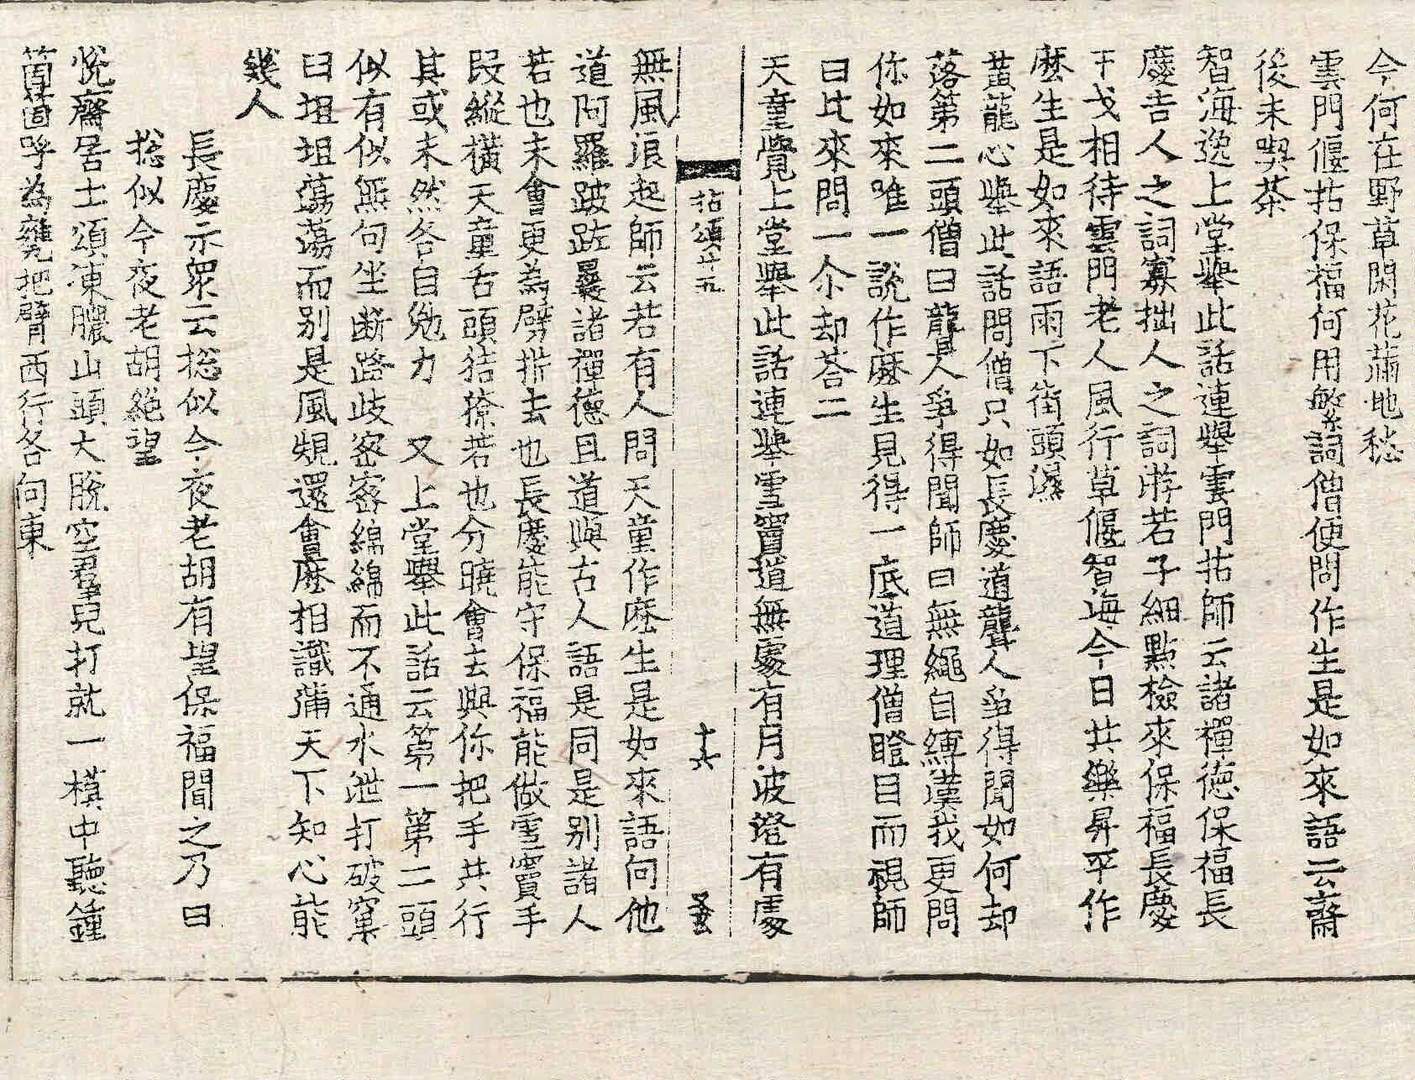 今何在野草閑花滿地愁
雲門偃拈保福何用繁詞僧便問作生是如來語云齋
後未喫茶
智海逸上堂舉此話連舉雲門拈師云諸禪德保福長
慶吉人之詞寡拙人之詞游若子細點檢來保福長慶
干戈相待雲門老人風行草偃智海今日共樂昇平作
麽生是如來語雨下街頭濕
黃龍心舉此話問僧只如長慶道聾人爭得聞如何却
落第二頭僧曰聾人爭得聞師曰無繩自縛漢我更問
你如來唯一說作麽生見得一底道理僧瞪目而視師
曰比來問一介却荅二
天童覺上堂舉此話連舉雪竇道無處有月波澄有處
拈頌廿九 十六
無風浪起師云若有人問天童作麽生是如來語向他
道阿羅跛跛曩諸禪德且道與古人語是同是別諸人
若也未會更為劈拆去也長慶能守保福能做雪竇手
段縱橫天童舌頭拮捺若也分曉會去與你把手共行
其或未然各自勉力 又上堂舉此話云第一第二頭
似有似無句坐断路歧密密綿綿而不通水泄打破窠
臼坦坦蕩蕩而別是風規還會麽相識滿天下知心能
幾人
長慶示衆云捴似今夜老胡有望保福聞之乃曰
捴似今夜老胡絕望
悅齋居士頌凍膿山頭大脫空羣兒打就一模中聽鍾
箇箇呼為甕把臂西行各向東